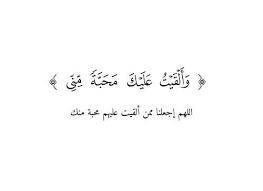 ﴿ وَأَلْقَيْتُ عَلَيْكَ مَحَبَّةً مِّنِّي ﴾
اللهم إجعلنا ممن ألقيت عليهم محبة منك